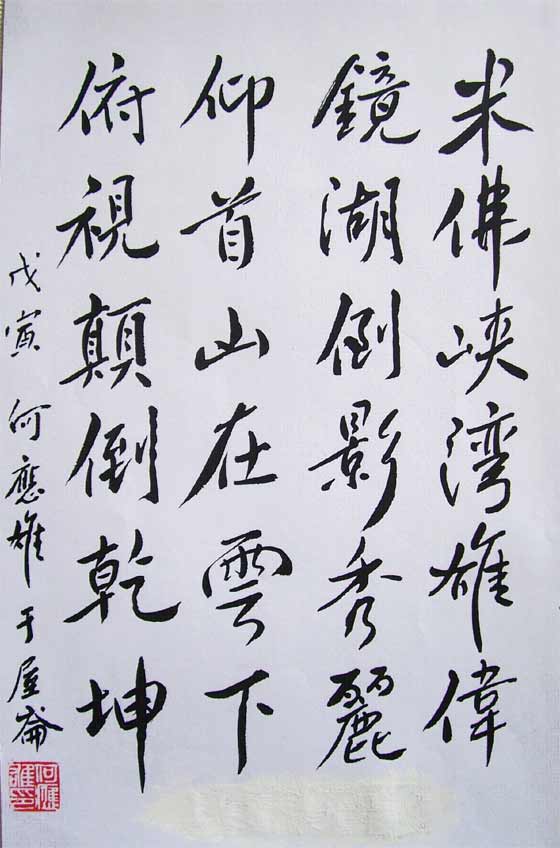 米佛峽灣雄偉
鏡湖倒影秀麗
仰首山在雲下
俯視顛倒乾坤
戊寅 何應雄 于屋崙
何應雄印